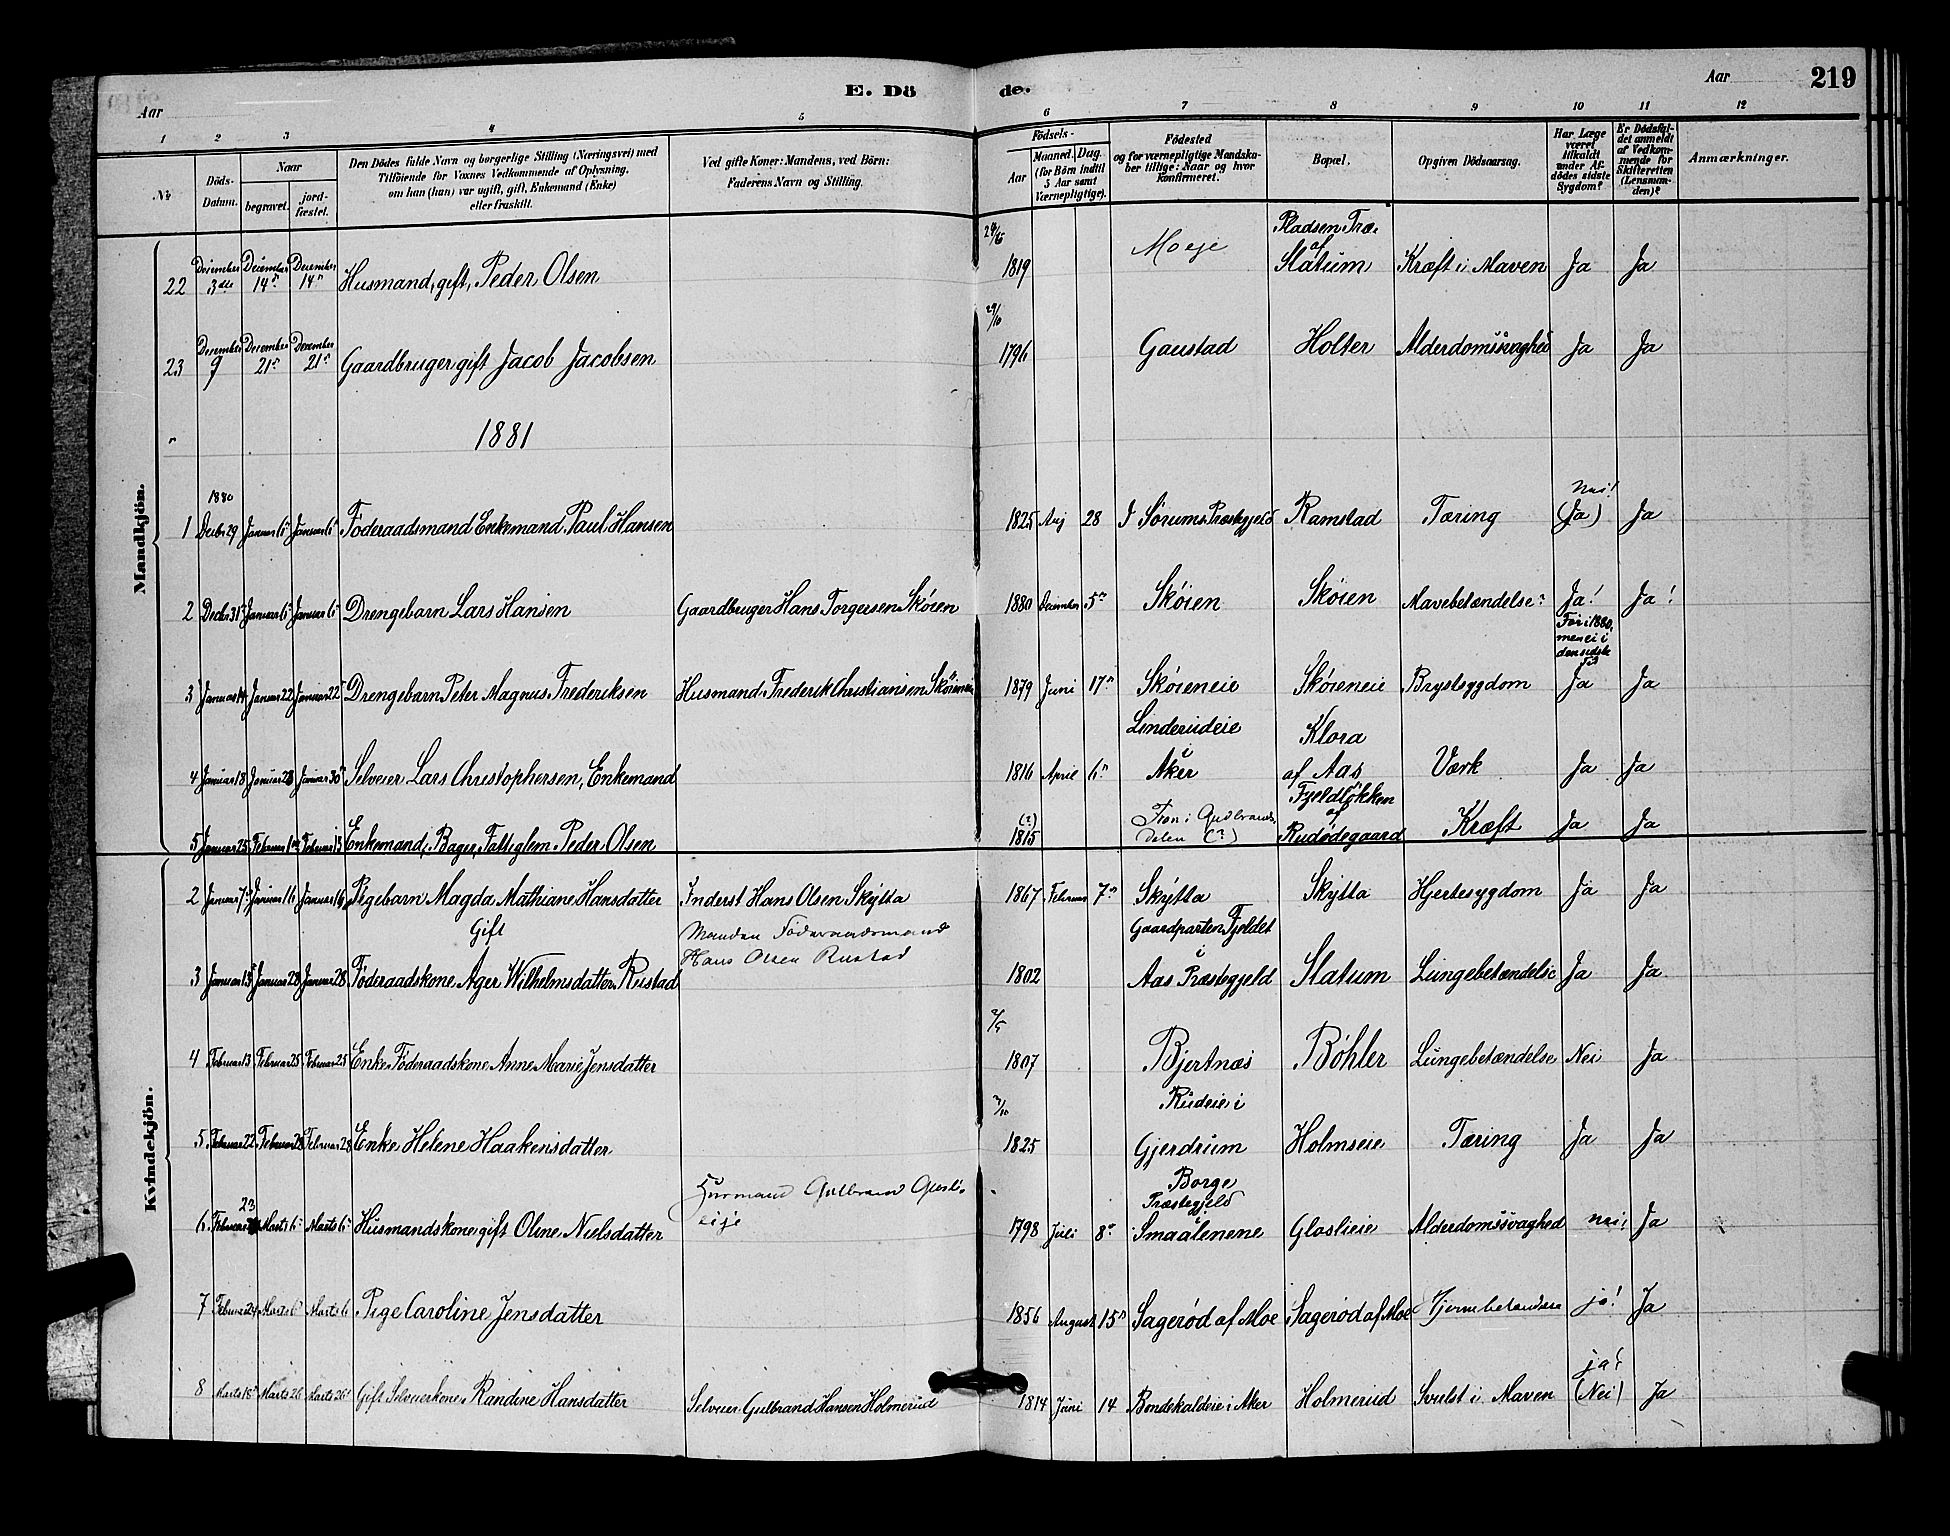 E. Dö
de.
Aar
Aar
219
1 2 3 4 5 6 7 8 9 10 11 12
No
Döds-Datum.
Naar
begravet.
jord-fæstet.
Den Dödes fulde Navn og borgerlige Stilling (Næringsvei) med
Tilföiende for Voxnes Vedkommende af Oplysning,
om han (hun) var ugift, gift, Enkemand (Enke)
eller fraskilt.
Ved gifte Koner: Mandens, ved Börn:
Faderens Navn og Stilling.
Födsels-
Aar
Maaned. Dag.
(for Börn indtil
5 Aar samt
Værnepligtige).
Födested
og for værnepligtige Mandska-
ber tillige: Naar og hvor
konfirmeret.
Bopæl.
Opgiven Dödsaarsag.
Har Læge
været
tilkaldt
under Af-
dödes sidste
Sygdom?
Er Dödsfal-
det anmeldt
af Vedkom-
mende for
Skifteretten
(Lensman-
den)?
Anmærkninger.
Mandkjön.
22 December 3die December 14de December 14de Husmand, gift, Peder Olsen 1819 Moeje Pladsen Træ. af Slatum Kræft i Maven Ja Ja
23 December 9 December 21de December 21de Gaardbruger gift Jacob Jacobsen 29/10 1796 Gaustad Holter Alderdomssvaghed Ja Ja
1881
1 1880 Decbr 29 Januar 6te Januar 6te Föderaadsmand Enkemand Paul Hansen 1825 28 I Sørums Præstegjeld Ramstad Tæring Nei! (Ja) Ja
2 Decbr 31te Januar 6te Januar 6te Drengebarn Lars Hansen Gaardbruger Hans Torgersen Skøien 1880 December 5te Skøien Skøien Mavebetændelse Ja! Ja!
3 Januar 14 Januar 22 Januar 22 Drengebarn Peter Magnus Frederiksen Husmand Frederik Christiansen Skøieneie 1879 Juni 17de Skøieneie Skøieneie Brystsygdom Før i 1880, men ei i den sidste Tid Ja Ja
4 Januar 18 Januar 28 Januar 30te Selveier Lars Christophersen, Enkemand 1816 April 6te Linderudeie i Aker Klora af Aas Værk Ja Ja
5 Januar 25 Februar Februar Enkemand, Bager, Fattiglem Peder Olsen (?) 1815 Fron i Gudbrands-dalen (?) Fjeldløkken af Rudødegaard Kræft Ja Ja
Kvindekjön.
2 Januar 7de Januar 16 Januar 16 Pigebarn Magda Mathiane Hansdatter Inderst Hans Olsen Skytta 1867 Februar 7de Skytta Skytta Hjertesygdom Ja Ja
3 Januar 13 Januar 28 Januar 28 Gift Föderaadskone Ager Wilhelmsdatter Rustad Manden Föderaadsmand Hans Olsen Rustad 1802 Gaardparten Fjeldet i Aas Præstegjeld Slatum Lungebetændelse Ja Ja
4 Februar 13 Februar 25 Februar 25 Enke Föderaadskone Anne Marie Jensdatter 2/5 1807 Bjertnæs Bøhler Lungebetændelse Nei Ja
5 Februar 22 Februar 28 Februar 28 Enke Helene Haakensdatter 1825 Rudeie i Gjerdrum Holmseie Tæring Ja Ja
6 Februar 23 Marts 6te Marts 6te Husmandskone gift Oline Nielsdatter Husmand Gulbrand Glasli-eije 1798 Juli 8de Borge Præstegjeld i Smaalenene Glaslieie Alderdomssvaghed nei! Ja
7 Februar 24 Marts 6te Marts 6 Pige Caroline Jensdatter 1856 August 15de Sagerød af Moe Sagerød af Moe Hjernebetændelse ja! Ja
8 Marts 18de Marts 26 Marts 26 Gift Selveierkone Randine Hansdatter Selveier Gulbrand Hansen Holmerud 1814 Juni 14 Bondekaldeie i Aker Holmerud Svulst i Maven ja? (Nei) Ja